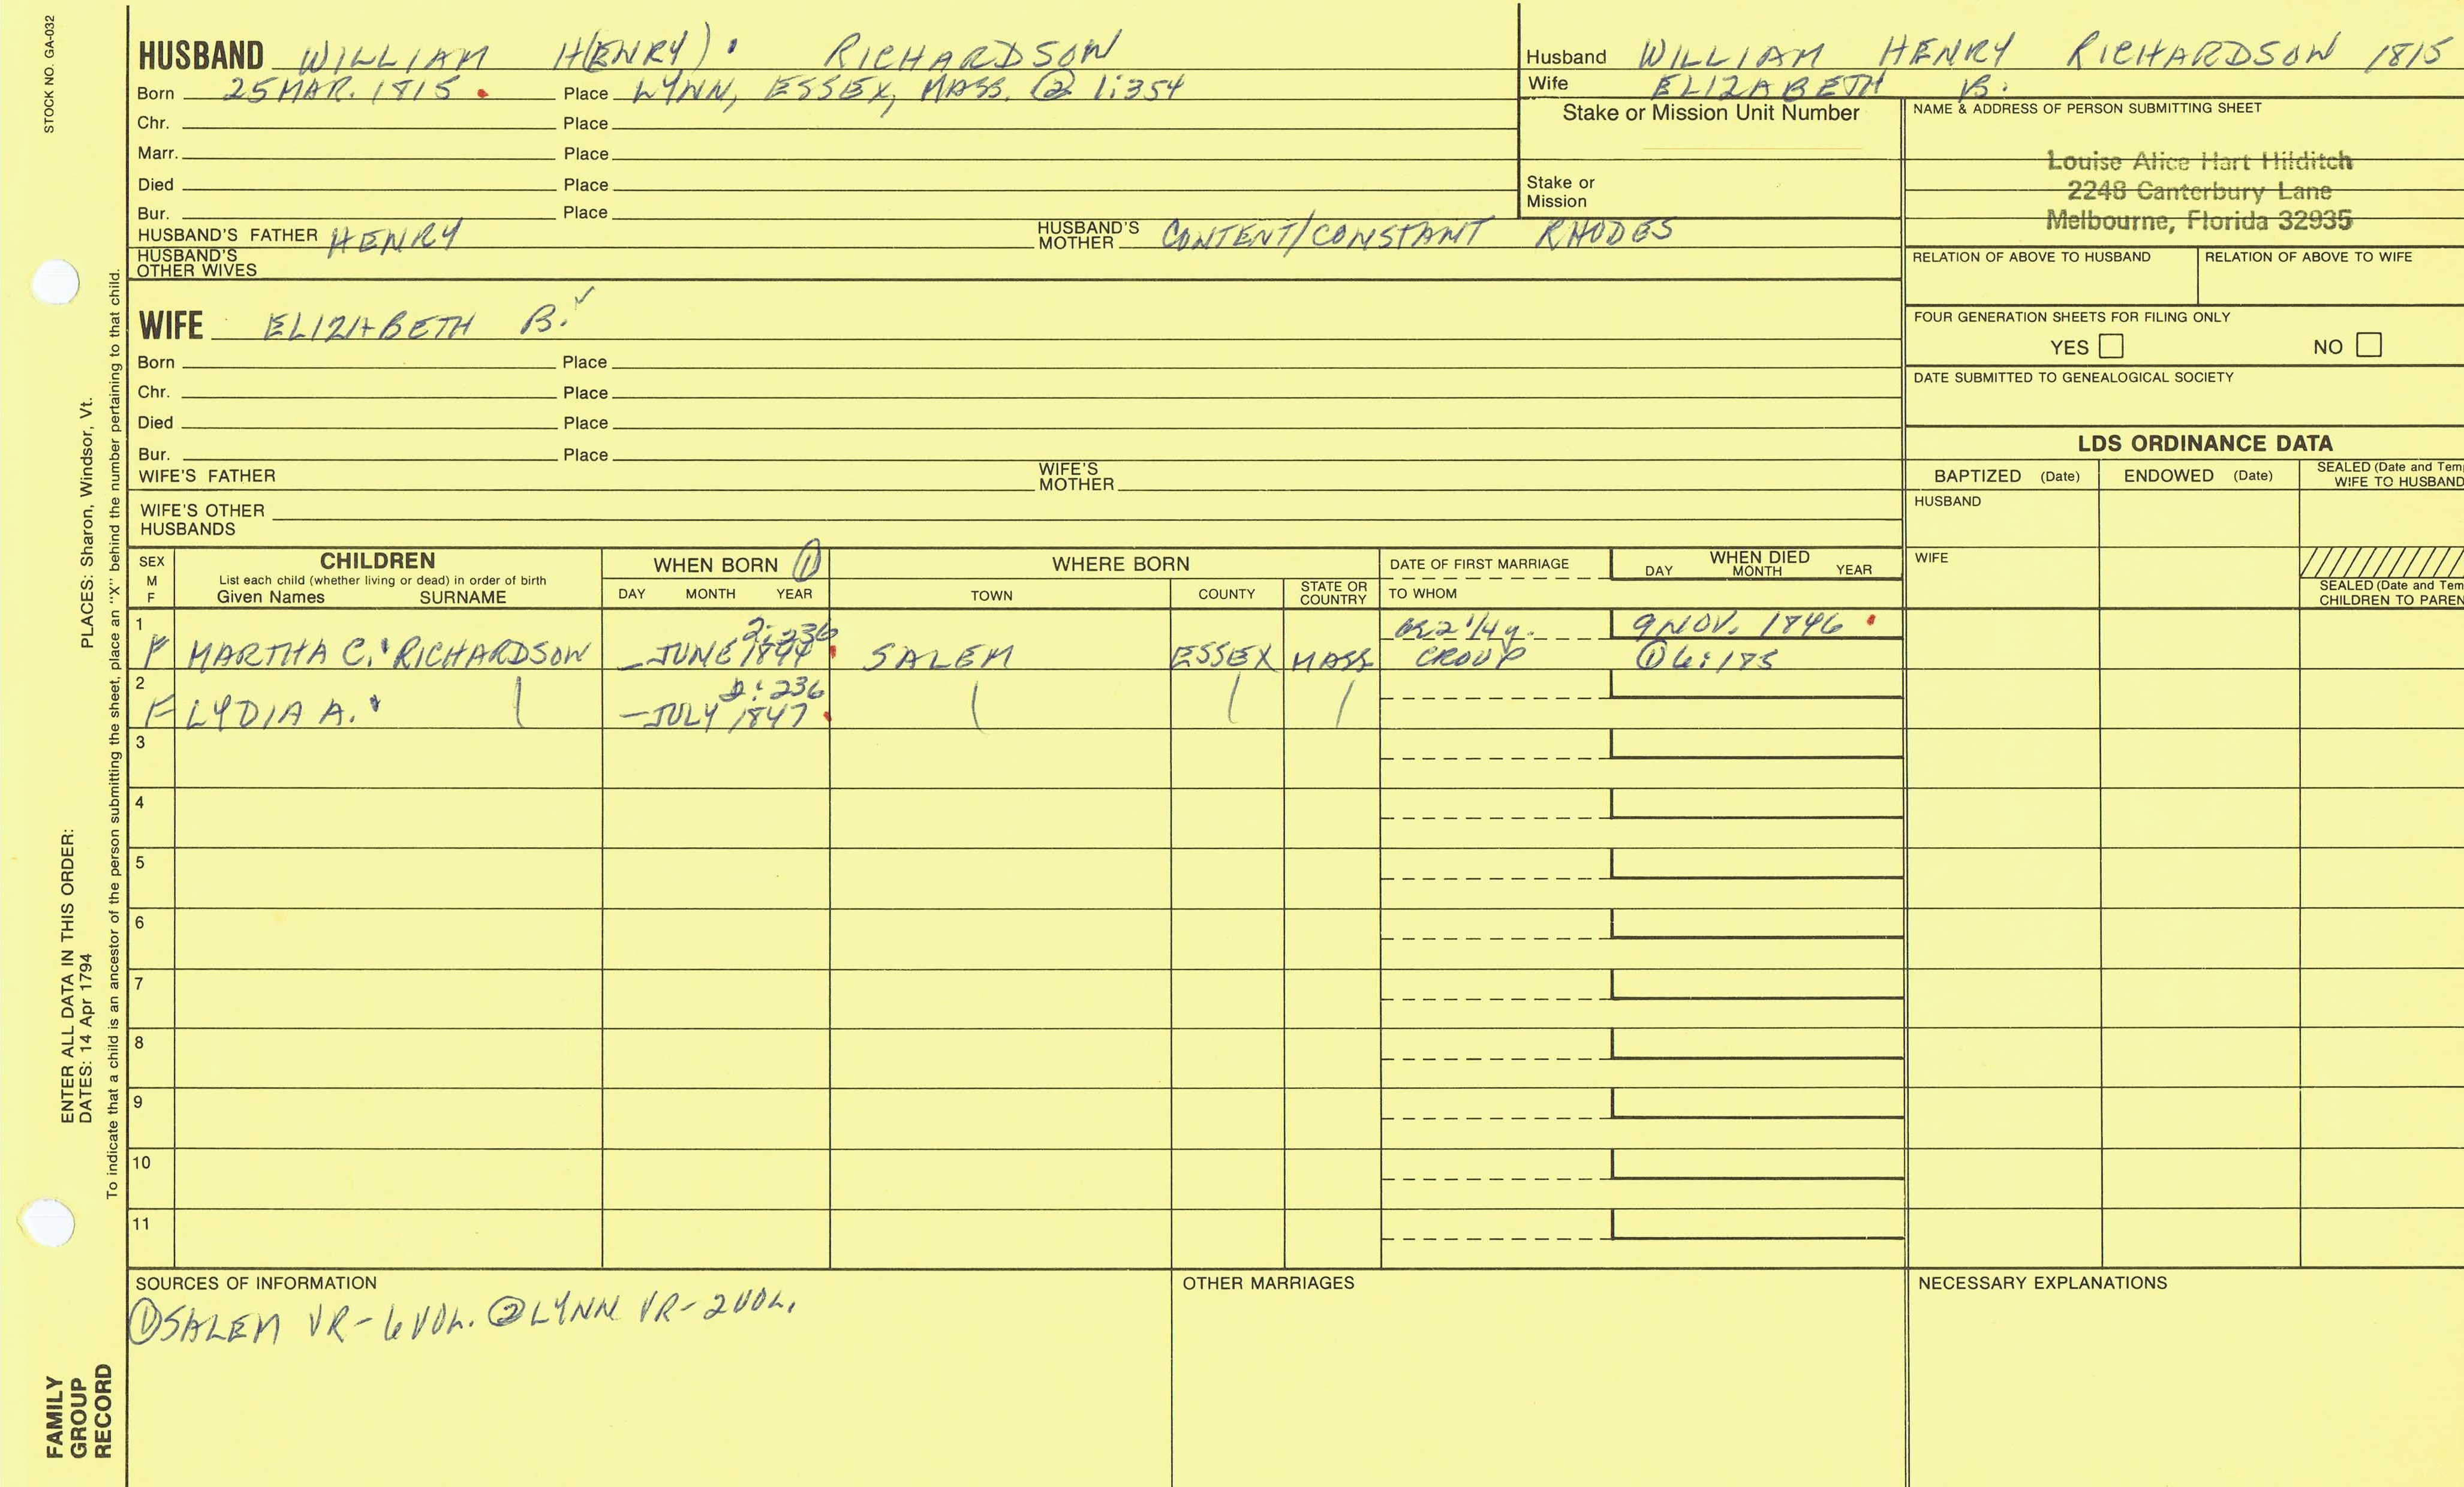 STOCK NO. GA-032
HUSBAND WILLIAM H(ENRY). RICHARDSON
Born 25 MAR. 1815. Place LYNN, ESSEX, MASS. ② 1:354
Chr. Place
Marr. Place
Died Place
Bur. Place
HUSBAND'S FATHER HENRY HUSBAND'S MOTHER CONTENT/CONSTANT RHODES
HUSBAND'S OTHER WIVES
Husband WILLIAM HENRY RICHARDSON 1815
Wife ELIZABETH B.
Stake or Mission Unit Number
Stake or Mission
NAME & ADDRESS OF PERSON SUBMITTING SHEET
Louise Alice Hart Hilditch
2248 Canterbury Lane
Melbourne, Florida 32935
RELATION OF ABOVE TO HUSBAND RELATION OF ABOVE TO WIFE
FOUR GENERATION SHEETS FOR FILING ONLY
YES NO
DATE SUBMITTED TO GENEALOGICAL SOCIETY
WIFE ELIZABETH B.
Born Place
Chr. Place
Died Place
Bur. Place
WIFE'S FATHER WIFE'S MOTHER
WIFE'S OTHER HUSBANDS
LDS ORDINANCE DATA
BAPTIZED (Date) ENDOWED (Date) SEALED (Date and Tem
WIFE TO HUSBAND
HUSBAND
WIFE
SEALED (Date and Tem
CHILDREN TO PAREN
SEX M F
CHILDREN
List each child (whether living or dead) in order of birth
Given Names SURNAME
WHEN BORN ①
DAY MONTH YEAR
WHERE BORN
TOWN COUNTY STATE OR COUNTRY
DATE OF FIRST MARRIAGE
TO WHOM
WHEN DIED
DAY MONTH YEAR
1 2:236 9 NOV. 1846
F MARTHA C. RICHARDSON – JUNE 1844 SALEM ESSEX MASS CROUP ① 6:185
2 2:236
F LYDIA A. – JULY 1847
3
4
5
6
7
8
9
10
11
SOURCES OF INFORMATION
① SALEM VR – 6 VOL. ② LYNN VR – 2 VOL.
OTHER MARRIAGES
NECESSARY EXPLANATIONS
PLACES: Sharon, Windsor, Vt.
ENTER ALL DATA IN THIS ORDER:
DATES: 14 Apr 1794
To indicate that a child is an ancestor of the person submitting the sheet, place an "X" behind the number pertaining to that child.
FAMILY
GROUP
RECORD